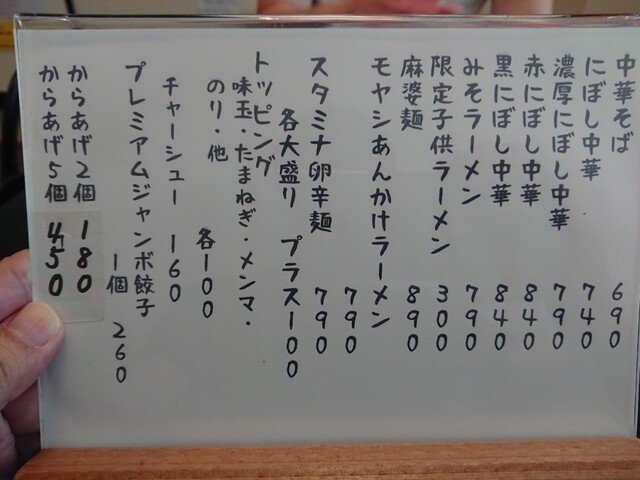 中華そば 690
にぼし中華 740
濃厚にぼし中華 790
赤にぼし中華 840
黒にぼし中華 840
みそラーメン 790
限定子供ラーメン 300
麻婆麺 890
モヤシあんかけラーメン 790
スタミナ卵辛麺 790
各大盛り プラス100
トッピング
味玉・たまねぎ・メンマ・
のり・他 各100
チャーシュー 160
プレミアムジャンボ餃子
1個 260
からあげ2個 180
からあげ5個 450